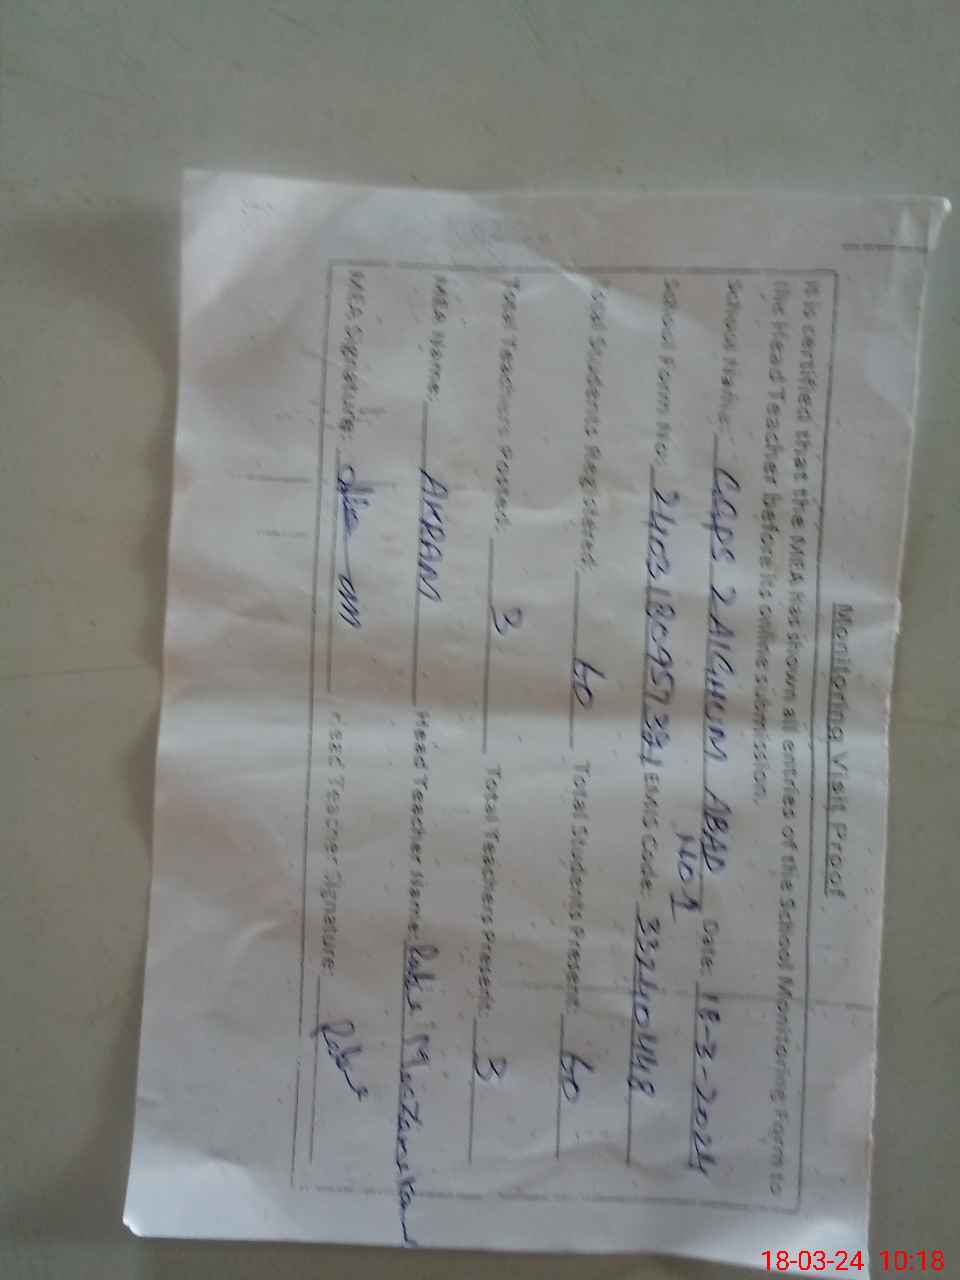 Monitoring Visit Proof
It is certified that the MEA has shown all entries of the School Monitoring Form to
the Head Teacher before its online submission.
School Name: GGPS ABAD NO 1 Date: 18-3-2024
School Form No: EMIS Code: 33240448
Total Students Registered: 60 Total Students Present: 60
Total Teachers Posted: 3 Total Teachers Present: 3
MEA Name: AKRAM Head Teacher Name:
MEA Signature: Head Teacher Signature:
18-03-24 10:18